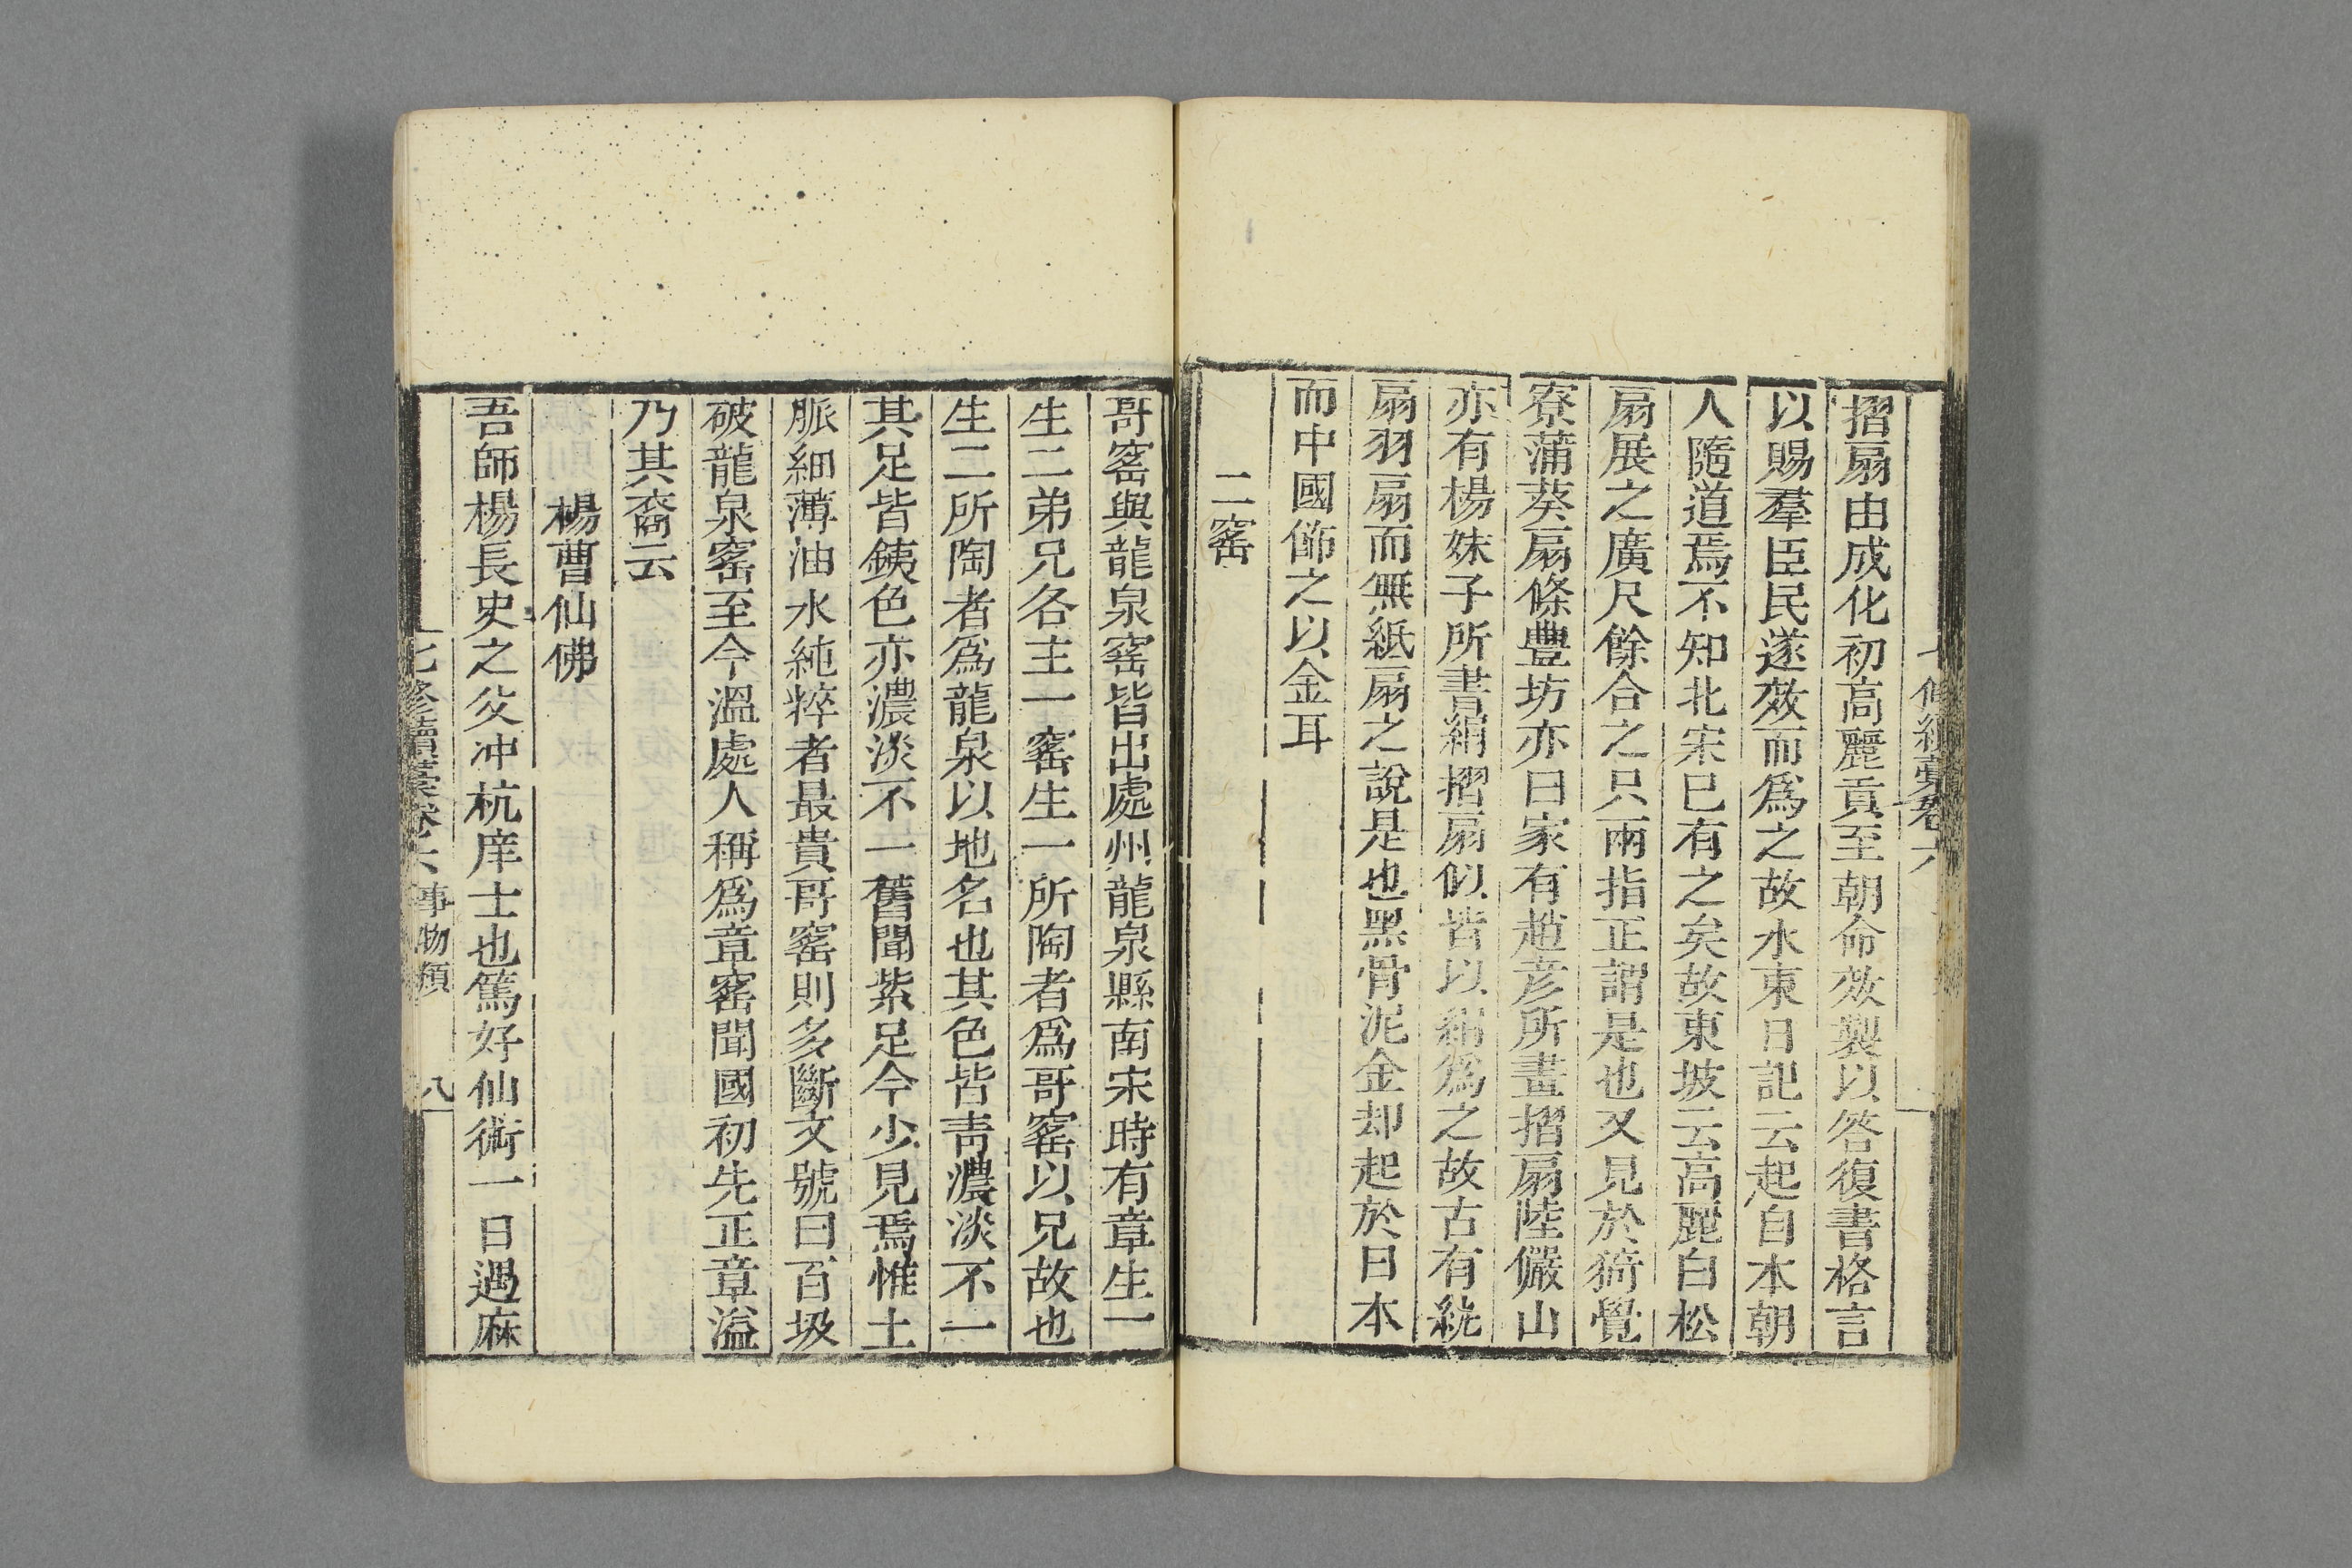 七修續藁卷六
摺扇由成化初高麗貢至朝命效製以答復書格言
以賜羣臣民遂效而爲之故水東日記云起自本朝
人隨道焉不知北宋已有之矣故東坡云高麗白松
扇展之廣尺餘合之只兩指正謂是也又見於猗覺
寮蒲葵扇條豐坊亦曰家有趙彥所畫摺扇陸儼山
亦有楊妹子所書絹摺扇似皆以絹爲之故古有紈
扇羽扇而無紙扇之說是也黑骨泥金却起於日本
而中國飾之以金耳
二窰
哥窰與龍泉窰皆出處州龍泉縣南宋時有章生一
生二弟兄各主一窰生一所陶者爲哥窰以兄故也
生二所陶者爲龍泉以地名也其色皆青濃淡不一
其足皆鉄色亦濃淡不一舊聞紫足今少見焉惟土
脈細薄油水純粹者最貴哥窰則多斷文號曰百圾
破龍泉窰至今溫處人稱爲章窰聞國初先正章溢
乃其裔云
楊曹仙佛
吾師楊長史之父冲杭庠士也篤好仙術一日遇麻
七修續藁卷六 事物類 八